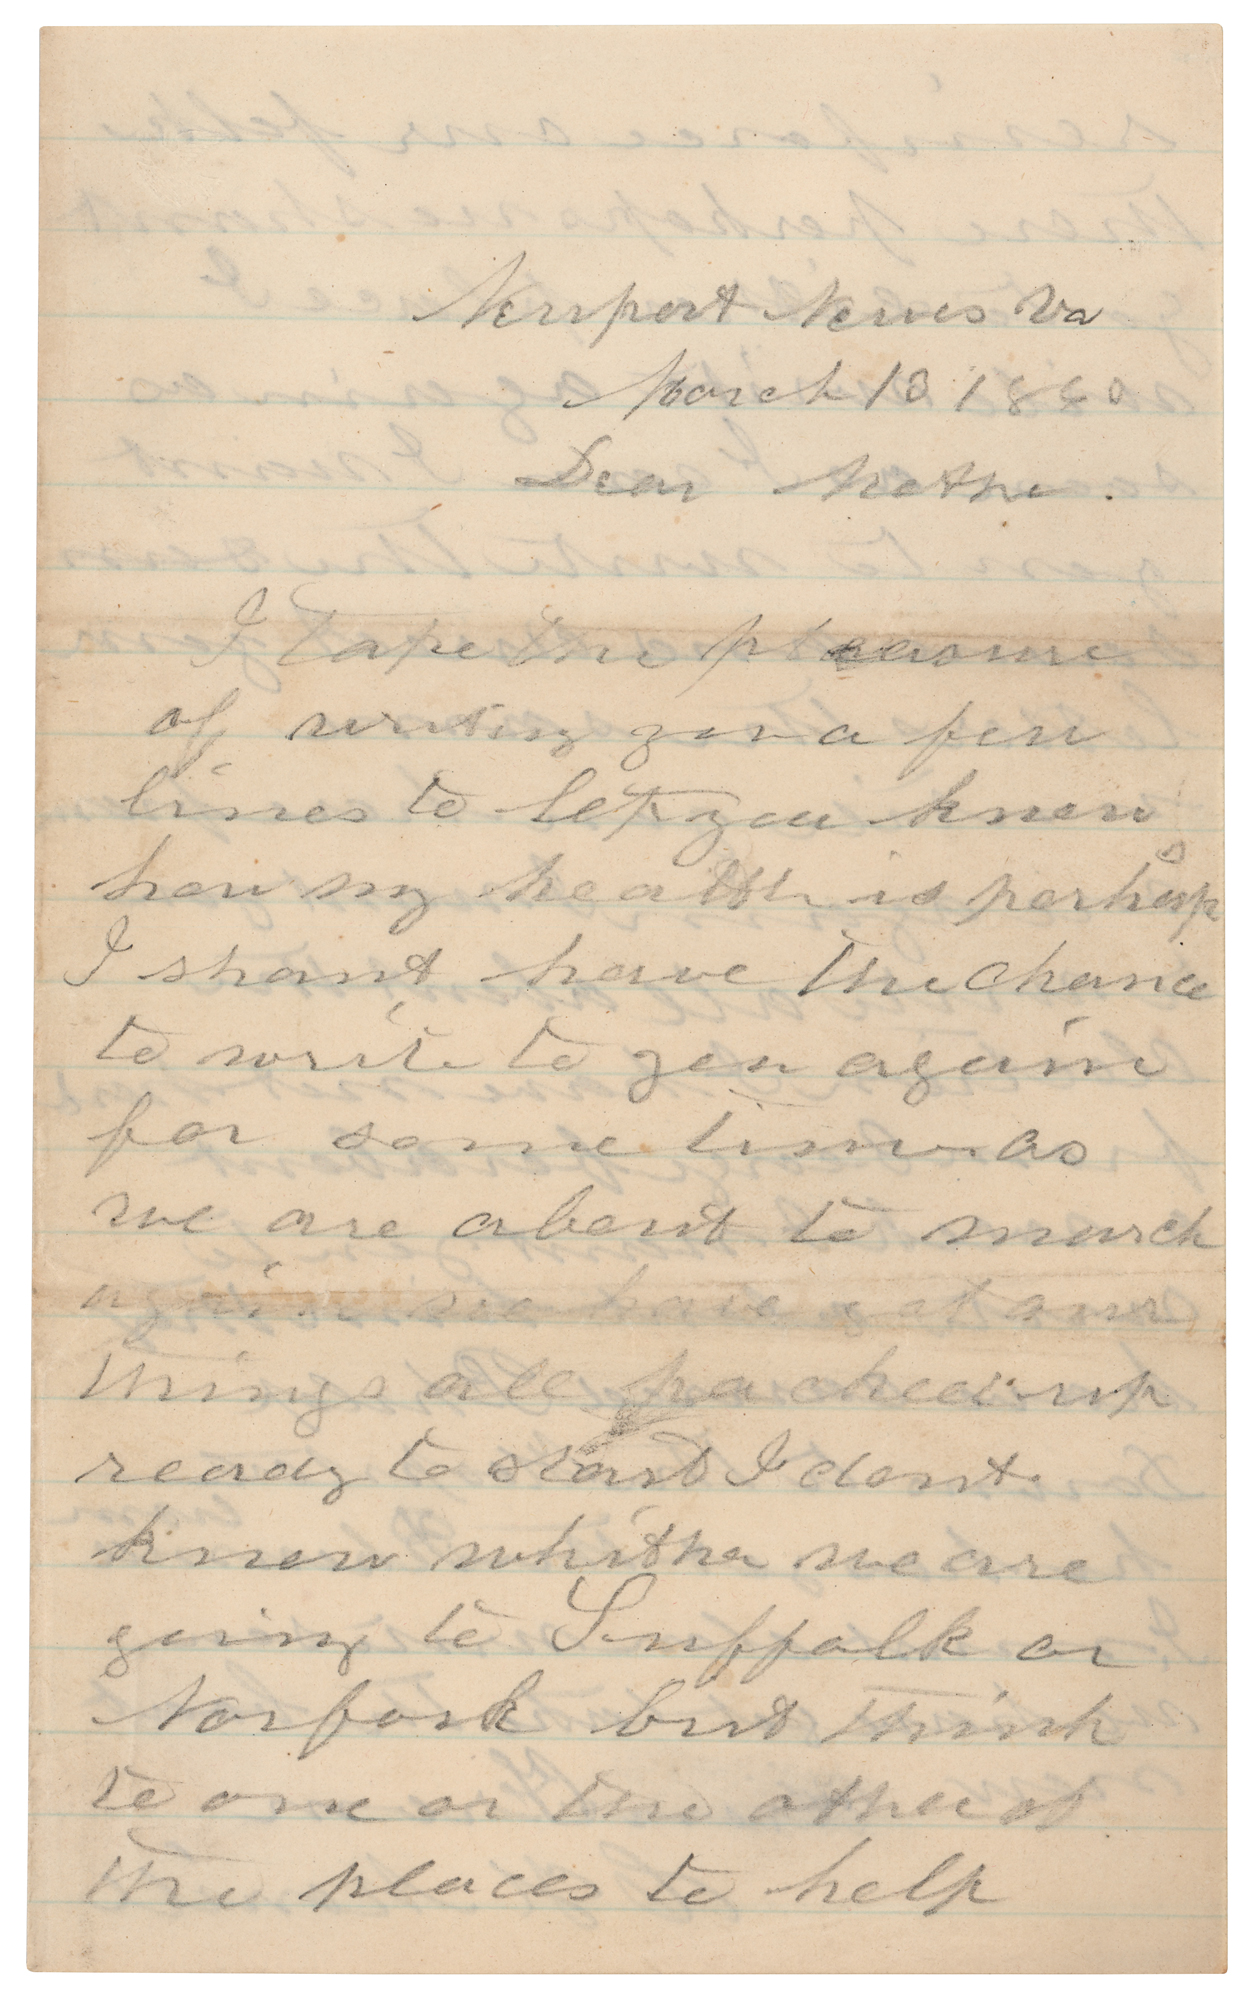 Newport News Va
March 13 1863
Dear Mother.
I take the pleasure
of writing you a few
lines to let you know
how my health is perhaps
I shant have the chance
to write to you again
for some time as
we are about to march
again we have got our
things all packed up
ready to start I dont
know whither we are
going to Suffolk or
Norfork but think
to one or the other of
the places to help